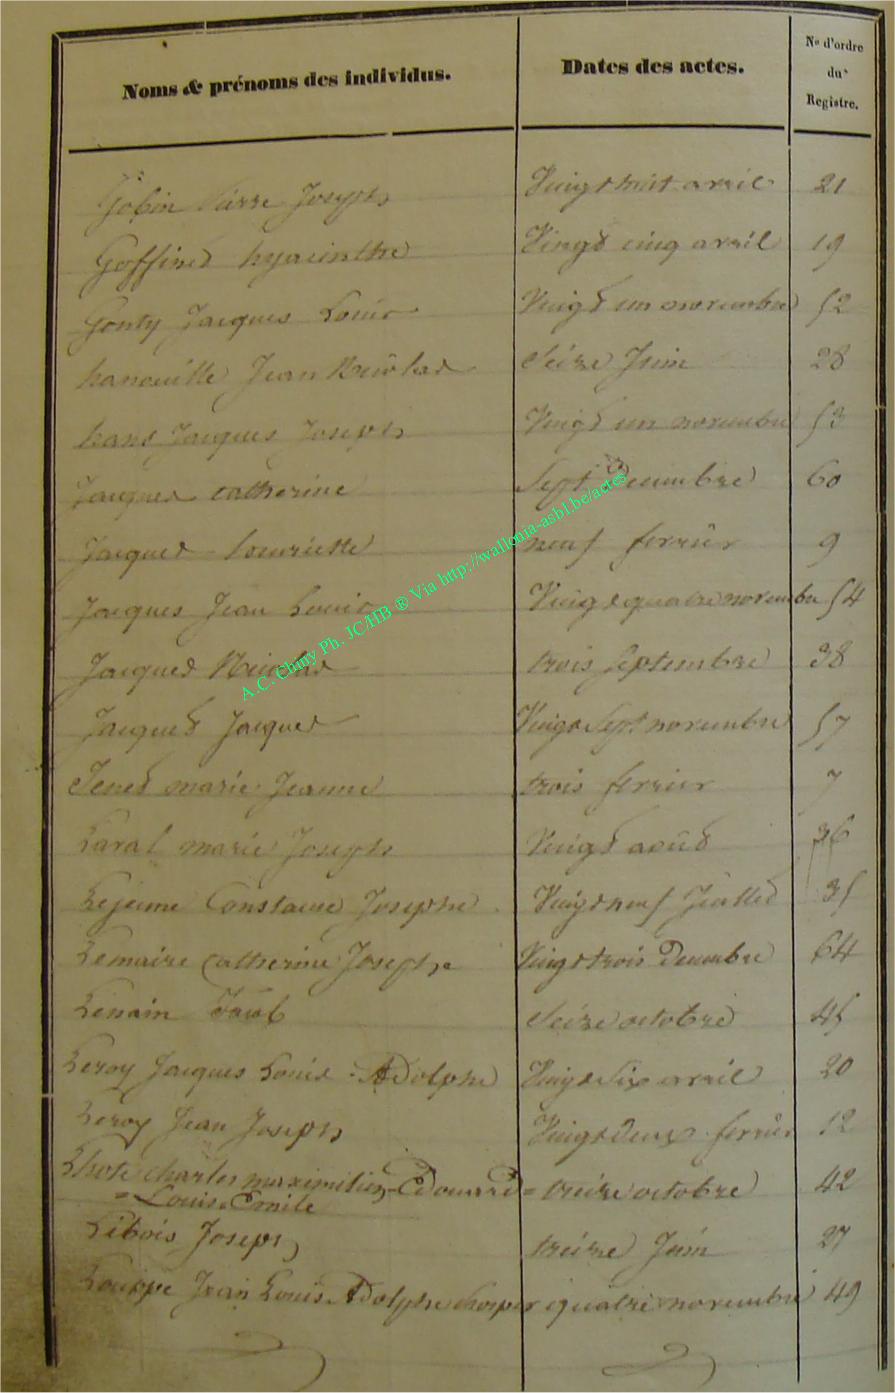 Noms & prénoms des individus. Dates des actes. Nº d'ordre du Registre.
Gobin Pierre Joseph Vingt huit avril 21
Goffined hyacinthe Vingt cinq avril 19
Gonty Jacques Louis Vingt un novembre 52
hanouille Jean Nicolas Seize Juin 28
hans Jacques Joseph Vingt un novembre 53
Jacques Catherine Sept Decembre 60
Jacques henriette neuf fevrier 9
Jacques Jean Louis Vingt quatre novembre 54
Jacques Nicolas trois Septembre 38
Jacques Jacques Vingt Sept novembre 57
marie Jeanne trois fevrier 7
Laval marie Joseph Vingt août 36
Lejeune Constance Josephe Vingt neuf Juillet 35
Lemaire Catherine Josephe Vingt trois Decembre 64
Lenain Seize octobre 45
Leroy Jacques Louis Adolphe Vingt Six avril 20
Leroy Jean Joseph Vingt Deux fevrier 12
Lhote charles maximilien Edouard = treize octobre 42
= Louis Emile
Libois Joseph treize Juin 27
Louppe Jean Louis Adolphe quatre novembre 49
A.C. Chiny Ph. JC/HB ® Via http://wallonia-asbl.be/actes